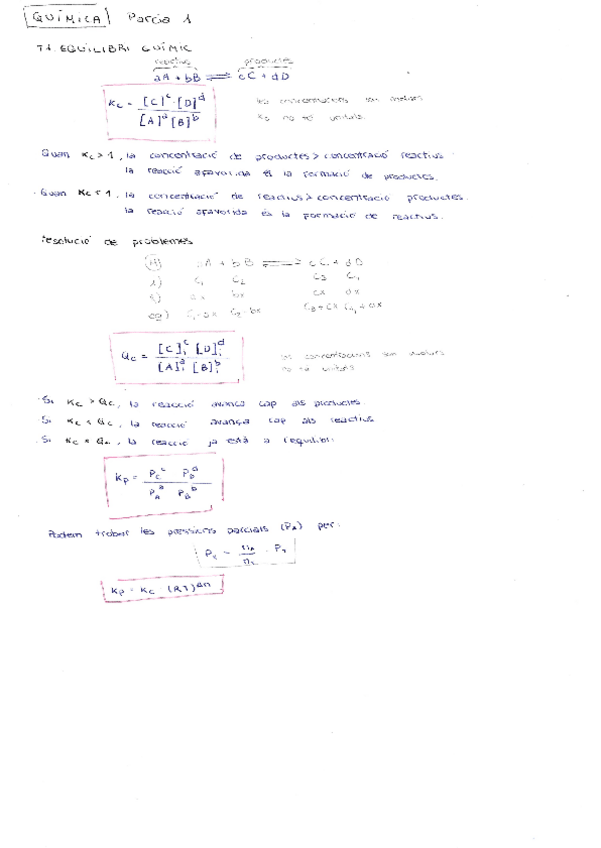 QUÍMICA Parcia 1
T1. EQUILIBRI QUÍMIC
reactius productes
aA + bB ⇌ cC + dD
Kc = [C]^c · [D]^d / [A]^a [B]^b
les concentracions son molars
no té unitats
Quan Kc > 1, la concentració de productes > concentració reactius
la reacció afavorida és la formació de productes.
· Quan Kc < 1, la concentració de reactius > concentració productes.
la reacció afavorida és la formació de reactius.
resolució de problemes
aA + bB ⇌ cC + dD
i) C₁ C₂ C₃ C₄
ax bx cx dx
eq) C₁-ax C₂-bx C₃+cx C₄+dx
Qc = [C]i^c [D]i^d / [A]i^a [B]i^b
les concentracions son molars
no té unitats
· Si Kc > Qc, la reacció avança cap als productes
· Si Kc < Qc, la reacció avança cap als reactius
· Si Kc = Qc, la reacció ja està a l'equilibri
Kp = Pc^c PD^d / PA^a PB^b
Podem trobar les pressions parcials (PA) per:
Kp = Kc (RT)^Δn